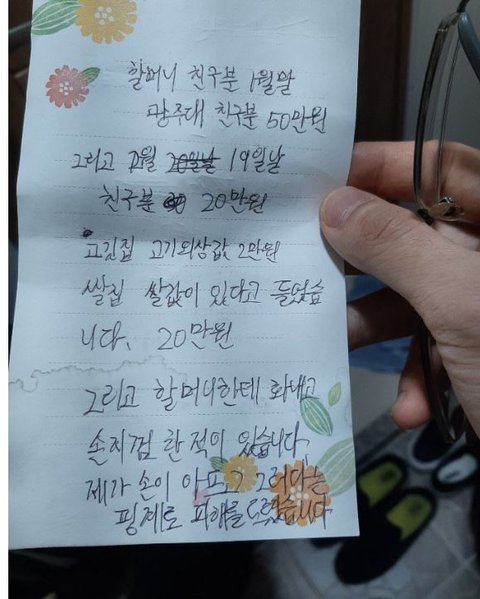 할머니 친구분 1월말
광주대 친구분 50만원
그리고 2월 20일날 19일날
친구분 20만원
고깃집 고기외상값 2만원
쌀집 쌀값이 있다고 들었습
니다. 20만원
그리고 할머니한테 화내고
손지껌 한적이 있습니다.
제가 손이 아프고 그러다는
핑계로 피해를 드렸습니다